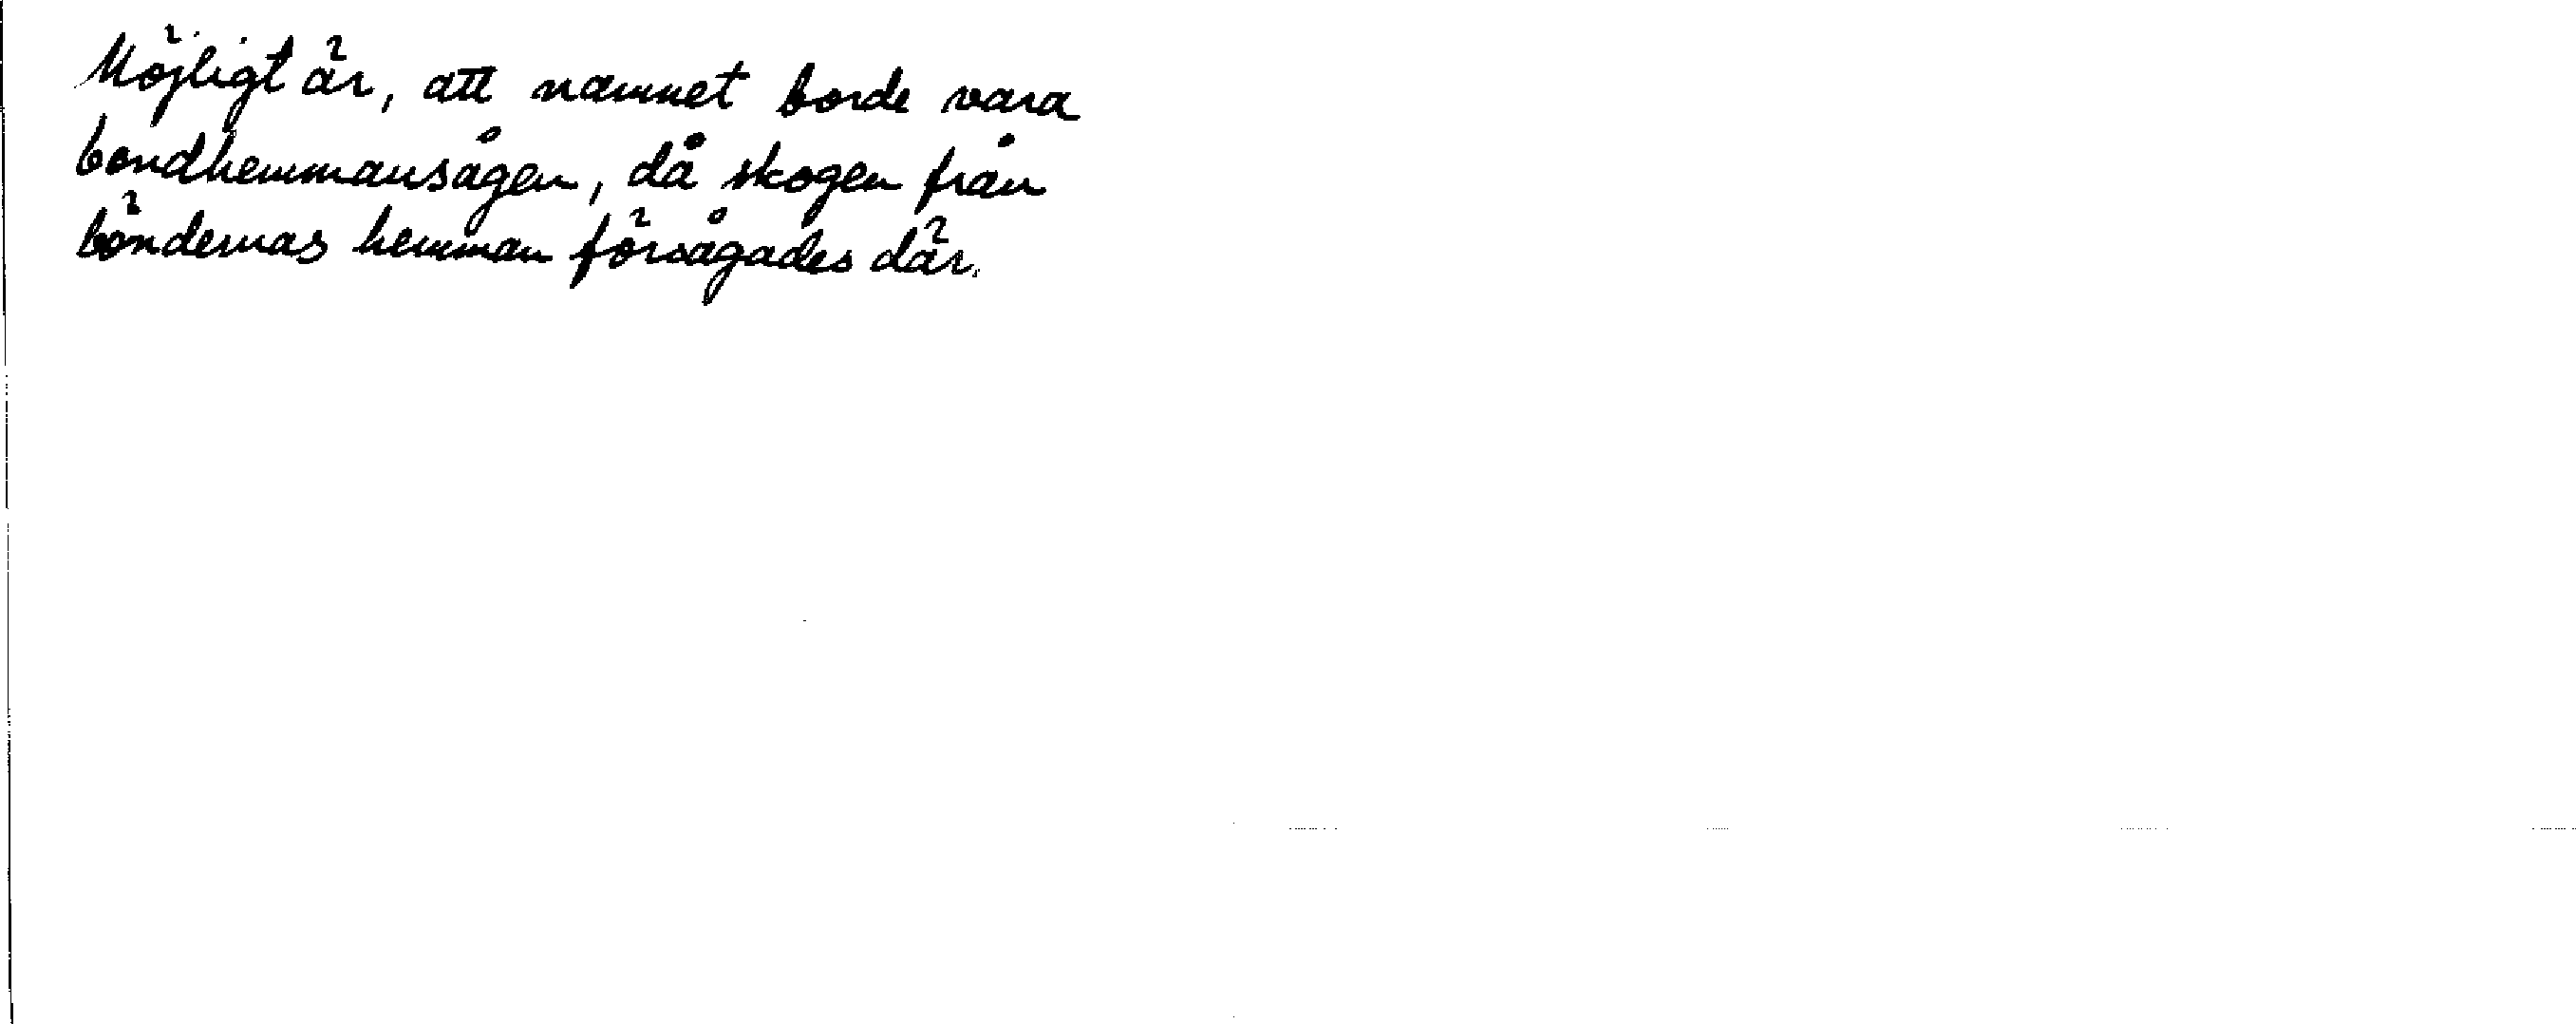 Möjligt är, att namnet borde vara
bondhemmansågen, då skogen från
böndernas hemman försågades där.